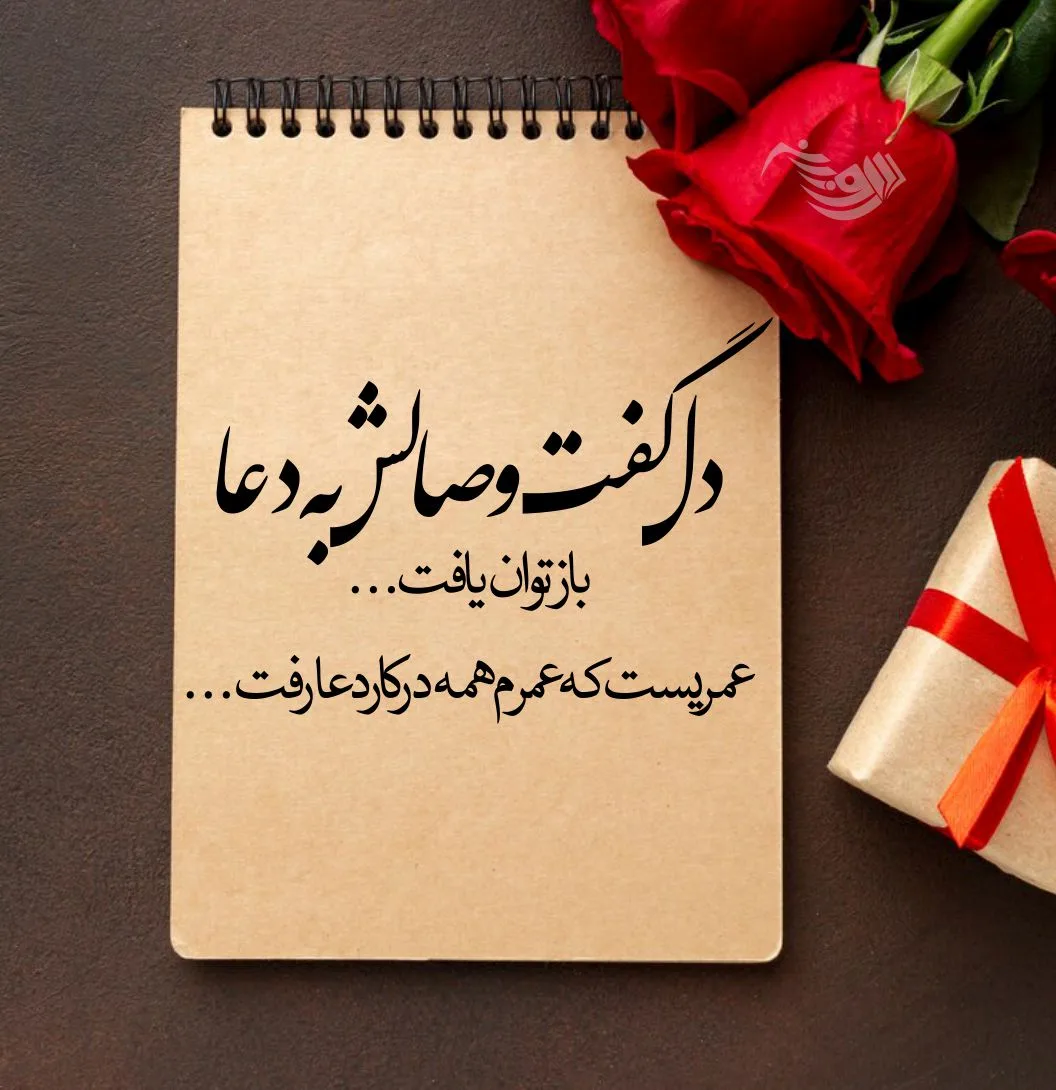 دل گفت وصالش به دعا
باز توان یافت...
عمریست که عمرم همه در کار دعا رفت...